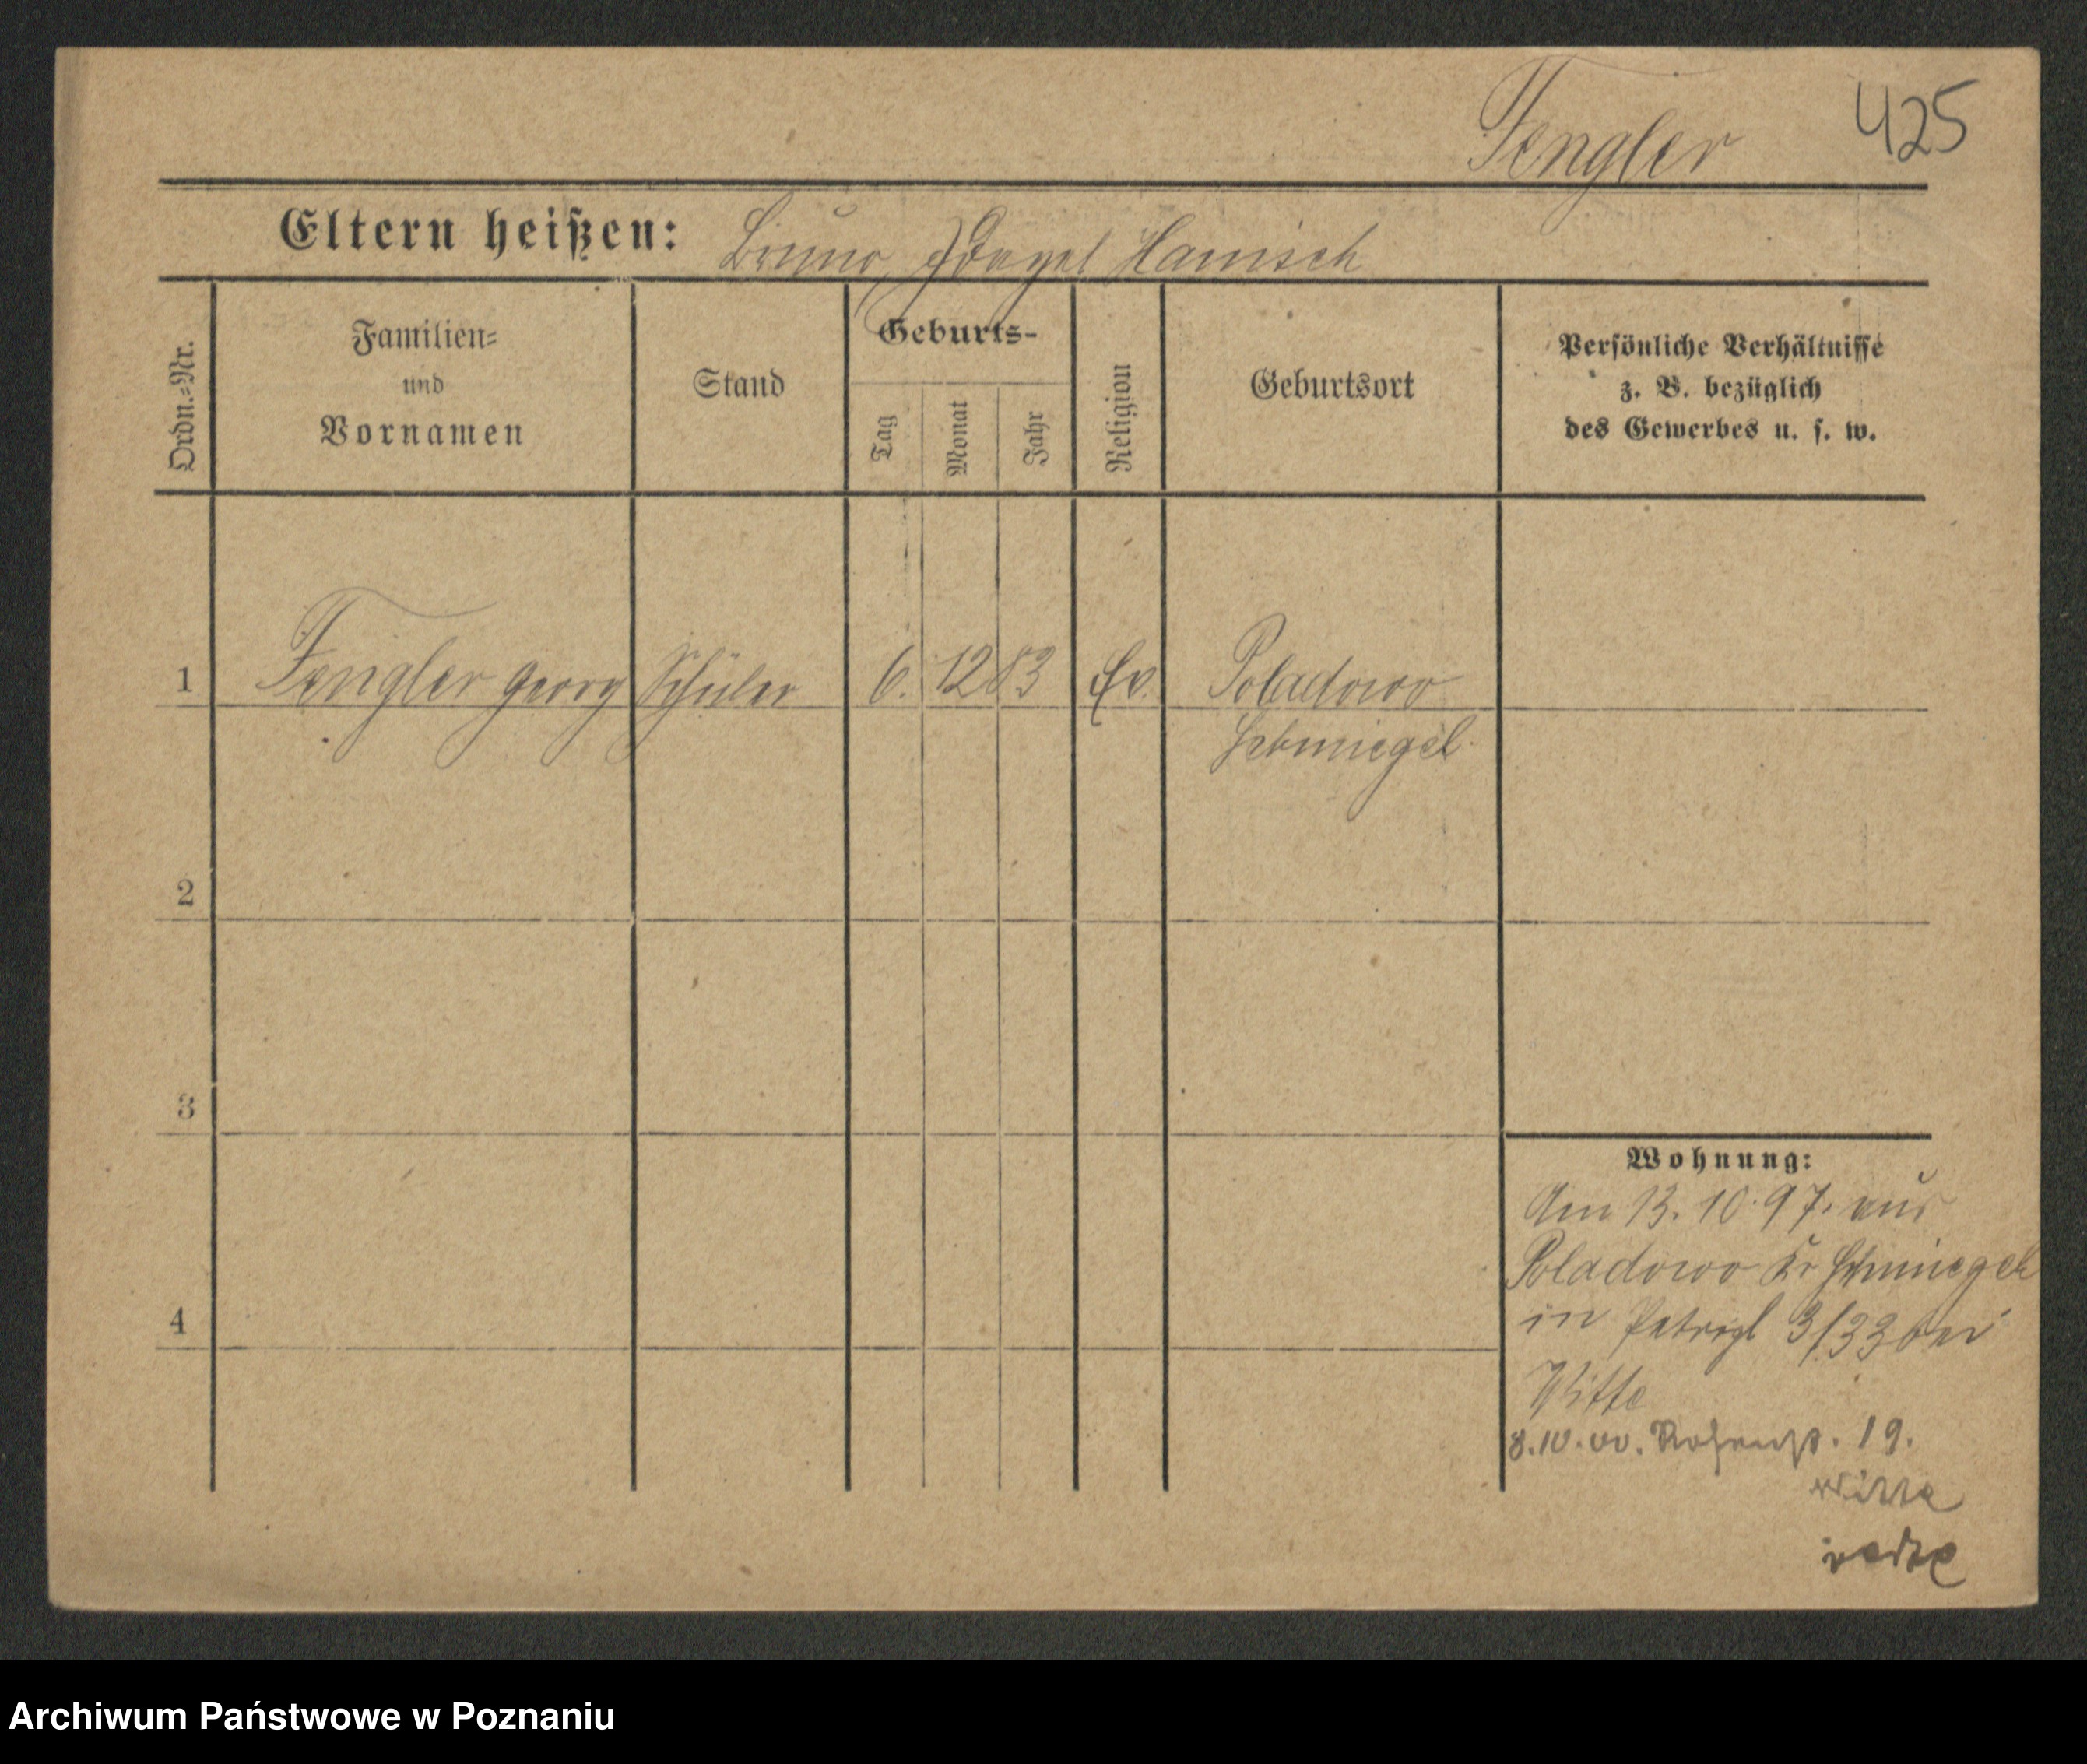 425
Fengler
Eltern heißen: Bruno, Hamisch
Ordn.-Nr.
Familien-
und
Vornamen
Stand
Geburts-
Tag
Monat
Jahr
Religion
Geburtsort
Persönliche Verhältnisse
z. B. bezüglich
des Gewerbes u. s. w.
1 Fengler Georg Schüler 6. 12 83 Ev. Poladowo
Schmiegel
2
3
4
Wohnung:
Am 13. 10. 97. aus
Poladowo Kr Schmiegel
in Petripl 3/33 bei
Witte
8.10.00. Rosenst. 19.
Witte
Archiwum Państwowe w Poznaniu